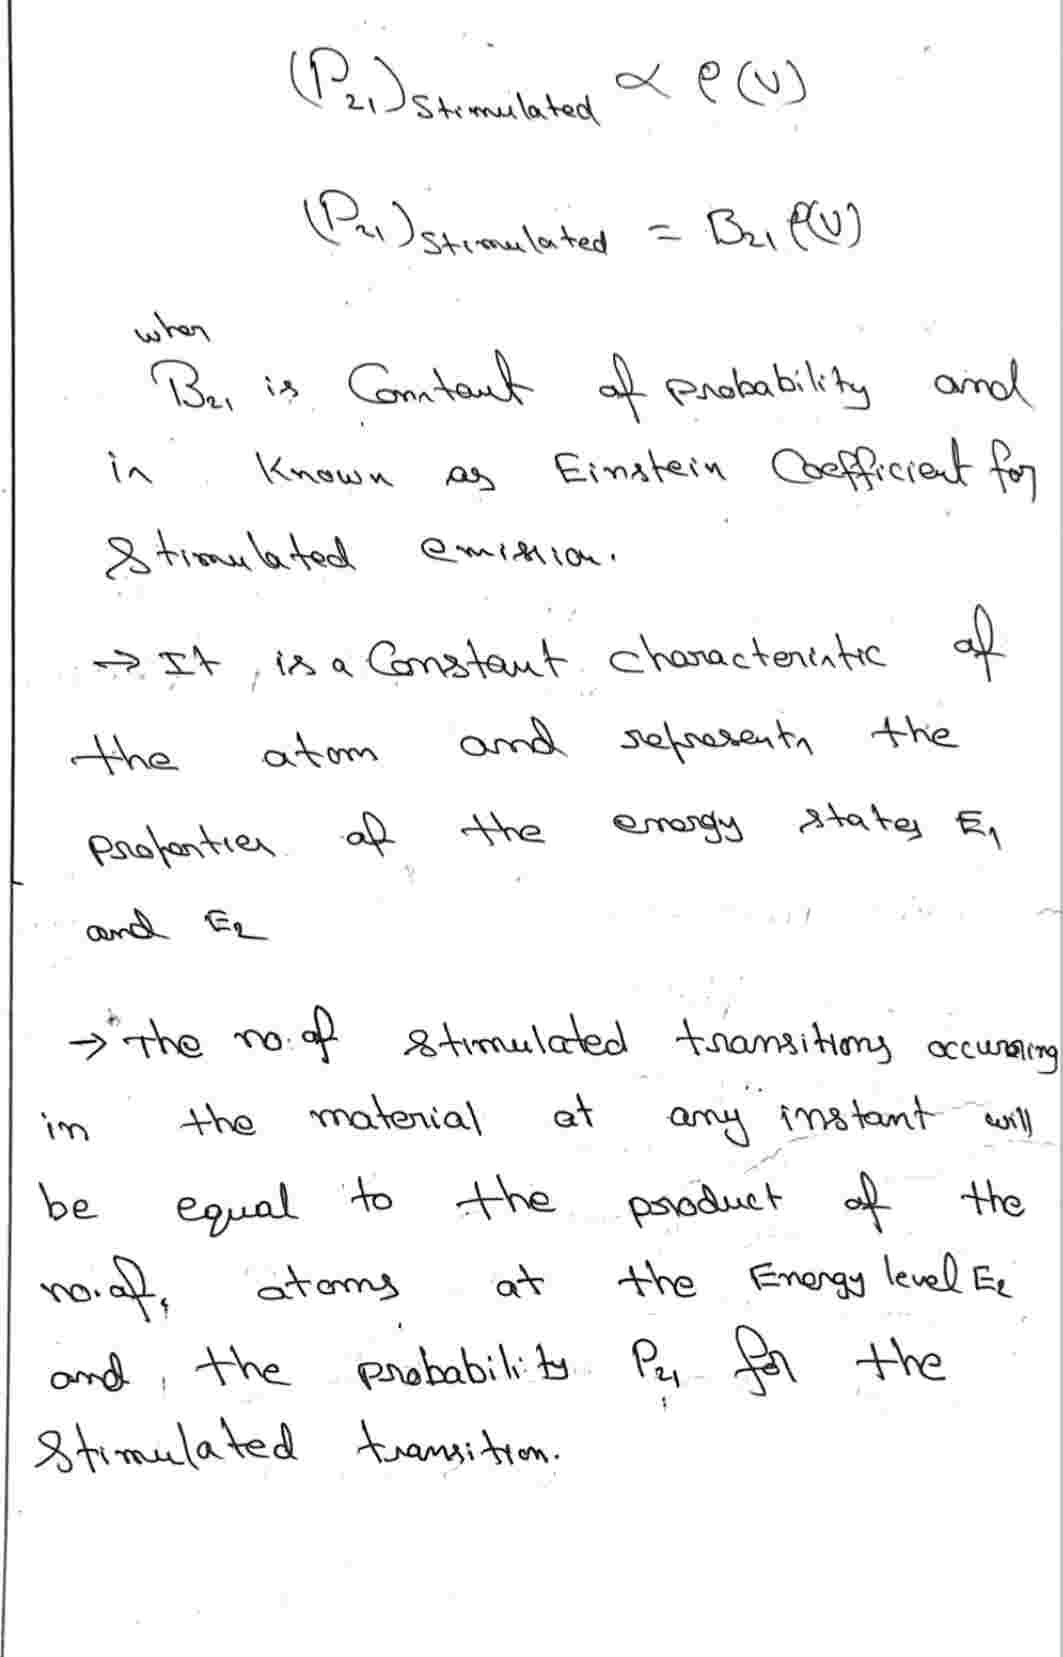 (P₂₁)stimulated ∝ ρ(ν)
(P₂₁)stimulated = B₂₁ ρ(ν)
when
B₂₁ is Constant of probability and
is known as Einstein Coefficient for
Stimulated emission.
→ It is a Constant characteristic of
the atom and represents the
properties of the energy states E₁
and E₂
→ The no. of stimulated transitions occurring
in the material at any instant will
be equal to the product of the
no. of atoms at the Energy level E₂
and the probability P₂₁ for the
Stimulated transition.